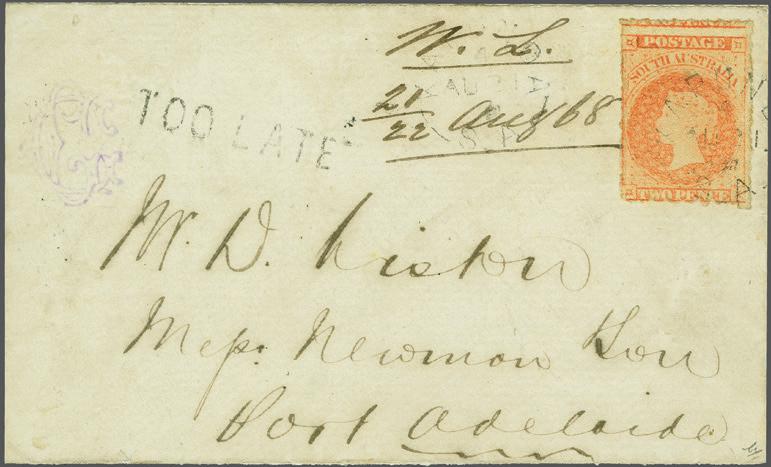 W. L.
21
22 Aug 68
TOO LATE
POSTAGE
SOUTH AUSTRALIA
TWO PENCE
AU 21
S.A
Mr. D. Liston
Messrs. Newman & Son
Port Adelaide